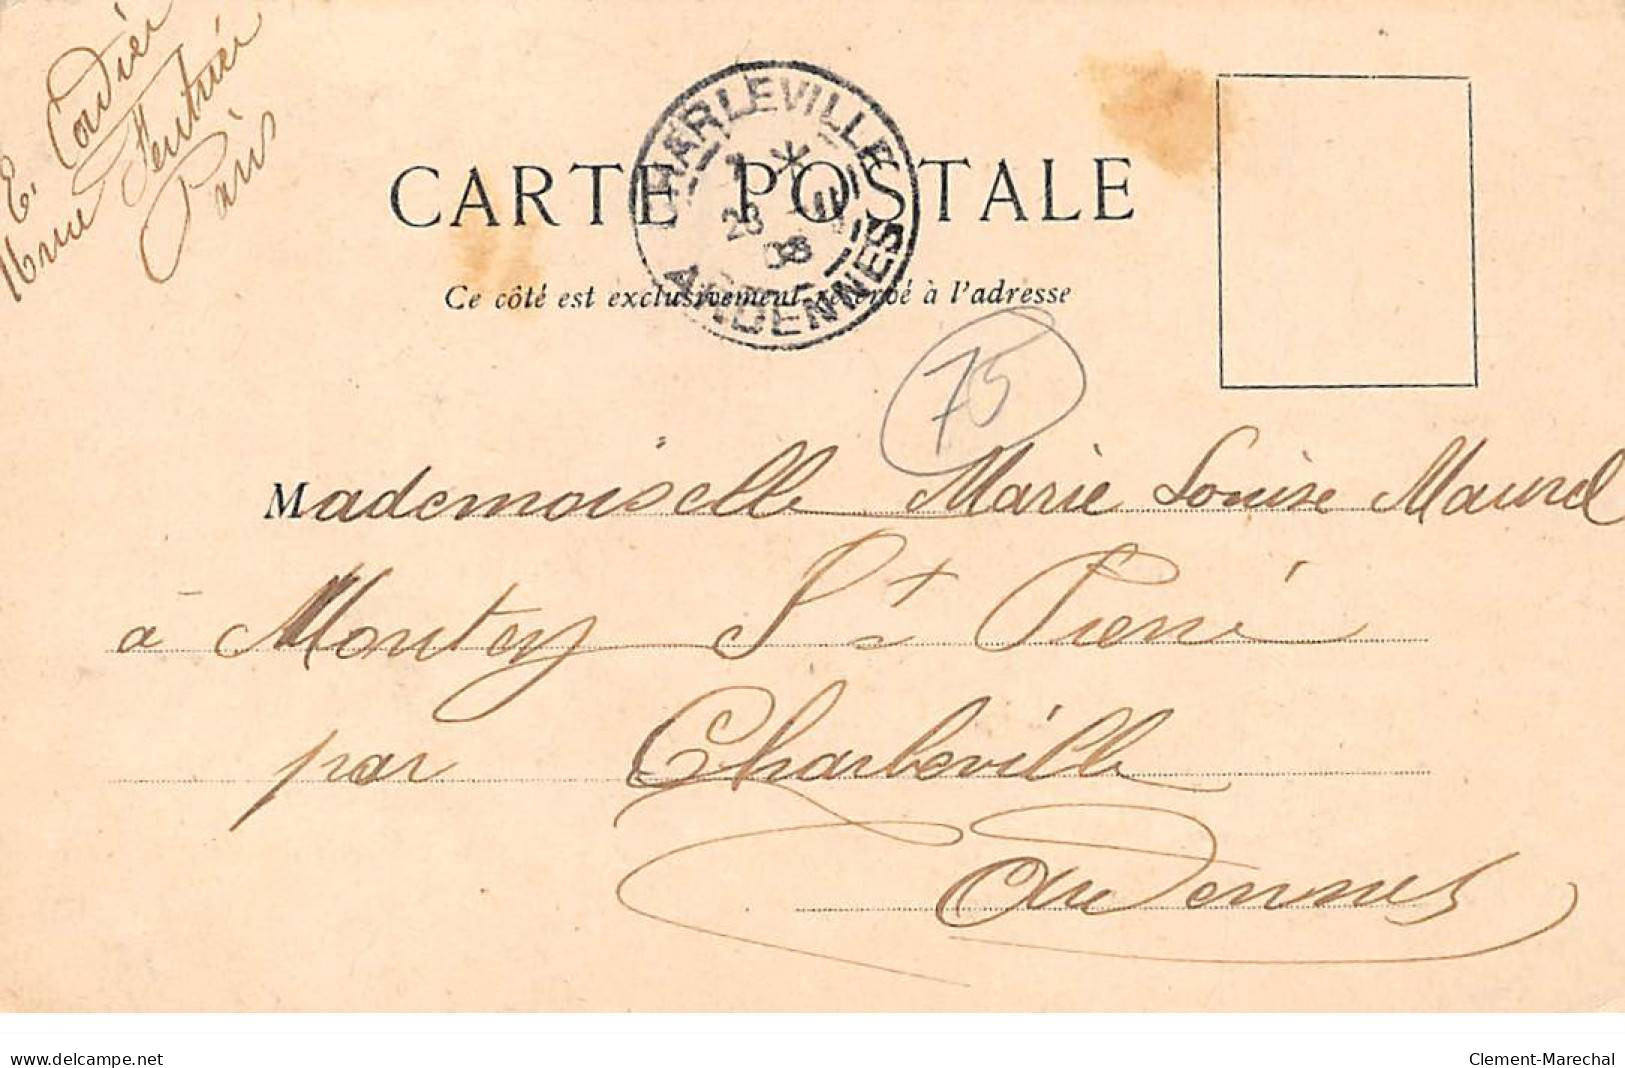 E. Cordier
16 rue Feutrier
Paris
CHARLEVILLE
ARDENNES
CARTE POSTALE
Ce côté est exclusivement réservé à l'adresse
75
Mademoiselle Marie Louise Maurel
à Montcy St Pierre
par Charleville
Ardennes
www.delcampe.net
Clement-Marechal